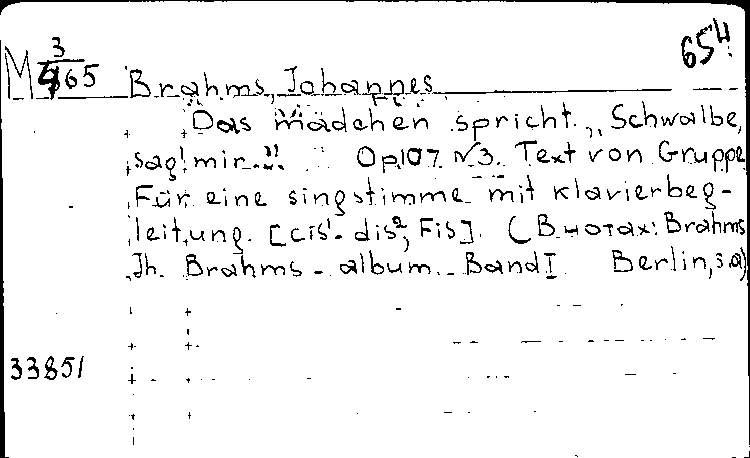 654
M 3/465 Brahms, Johannes
Das Mädchen spricht „Schwalbe,
sag' mir..." Op.107 N3. Text von Gruppe
Für eine singstimme mit klavierbeg-
leitung. [cis¹- dis², Fis]. (В нотах: Brahms
Jh. Brahms - album. Band I Berlin, s.a)
33851